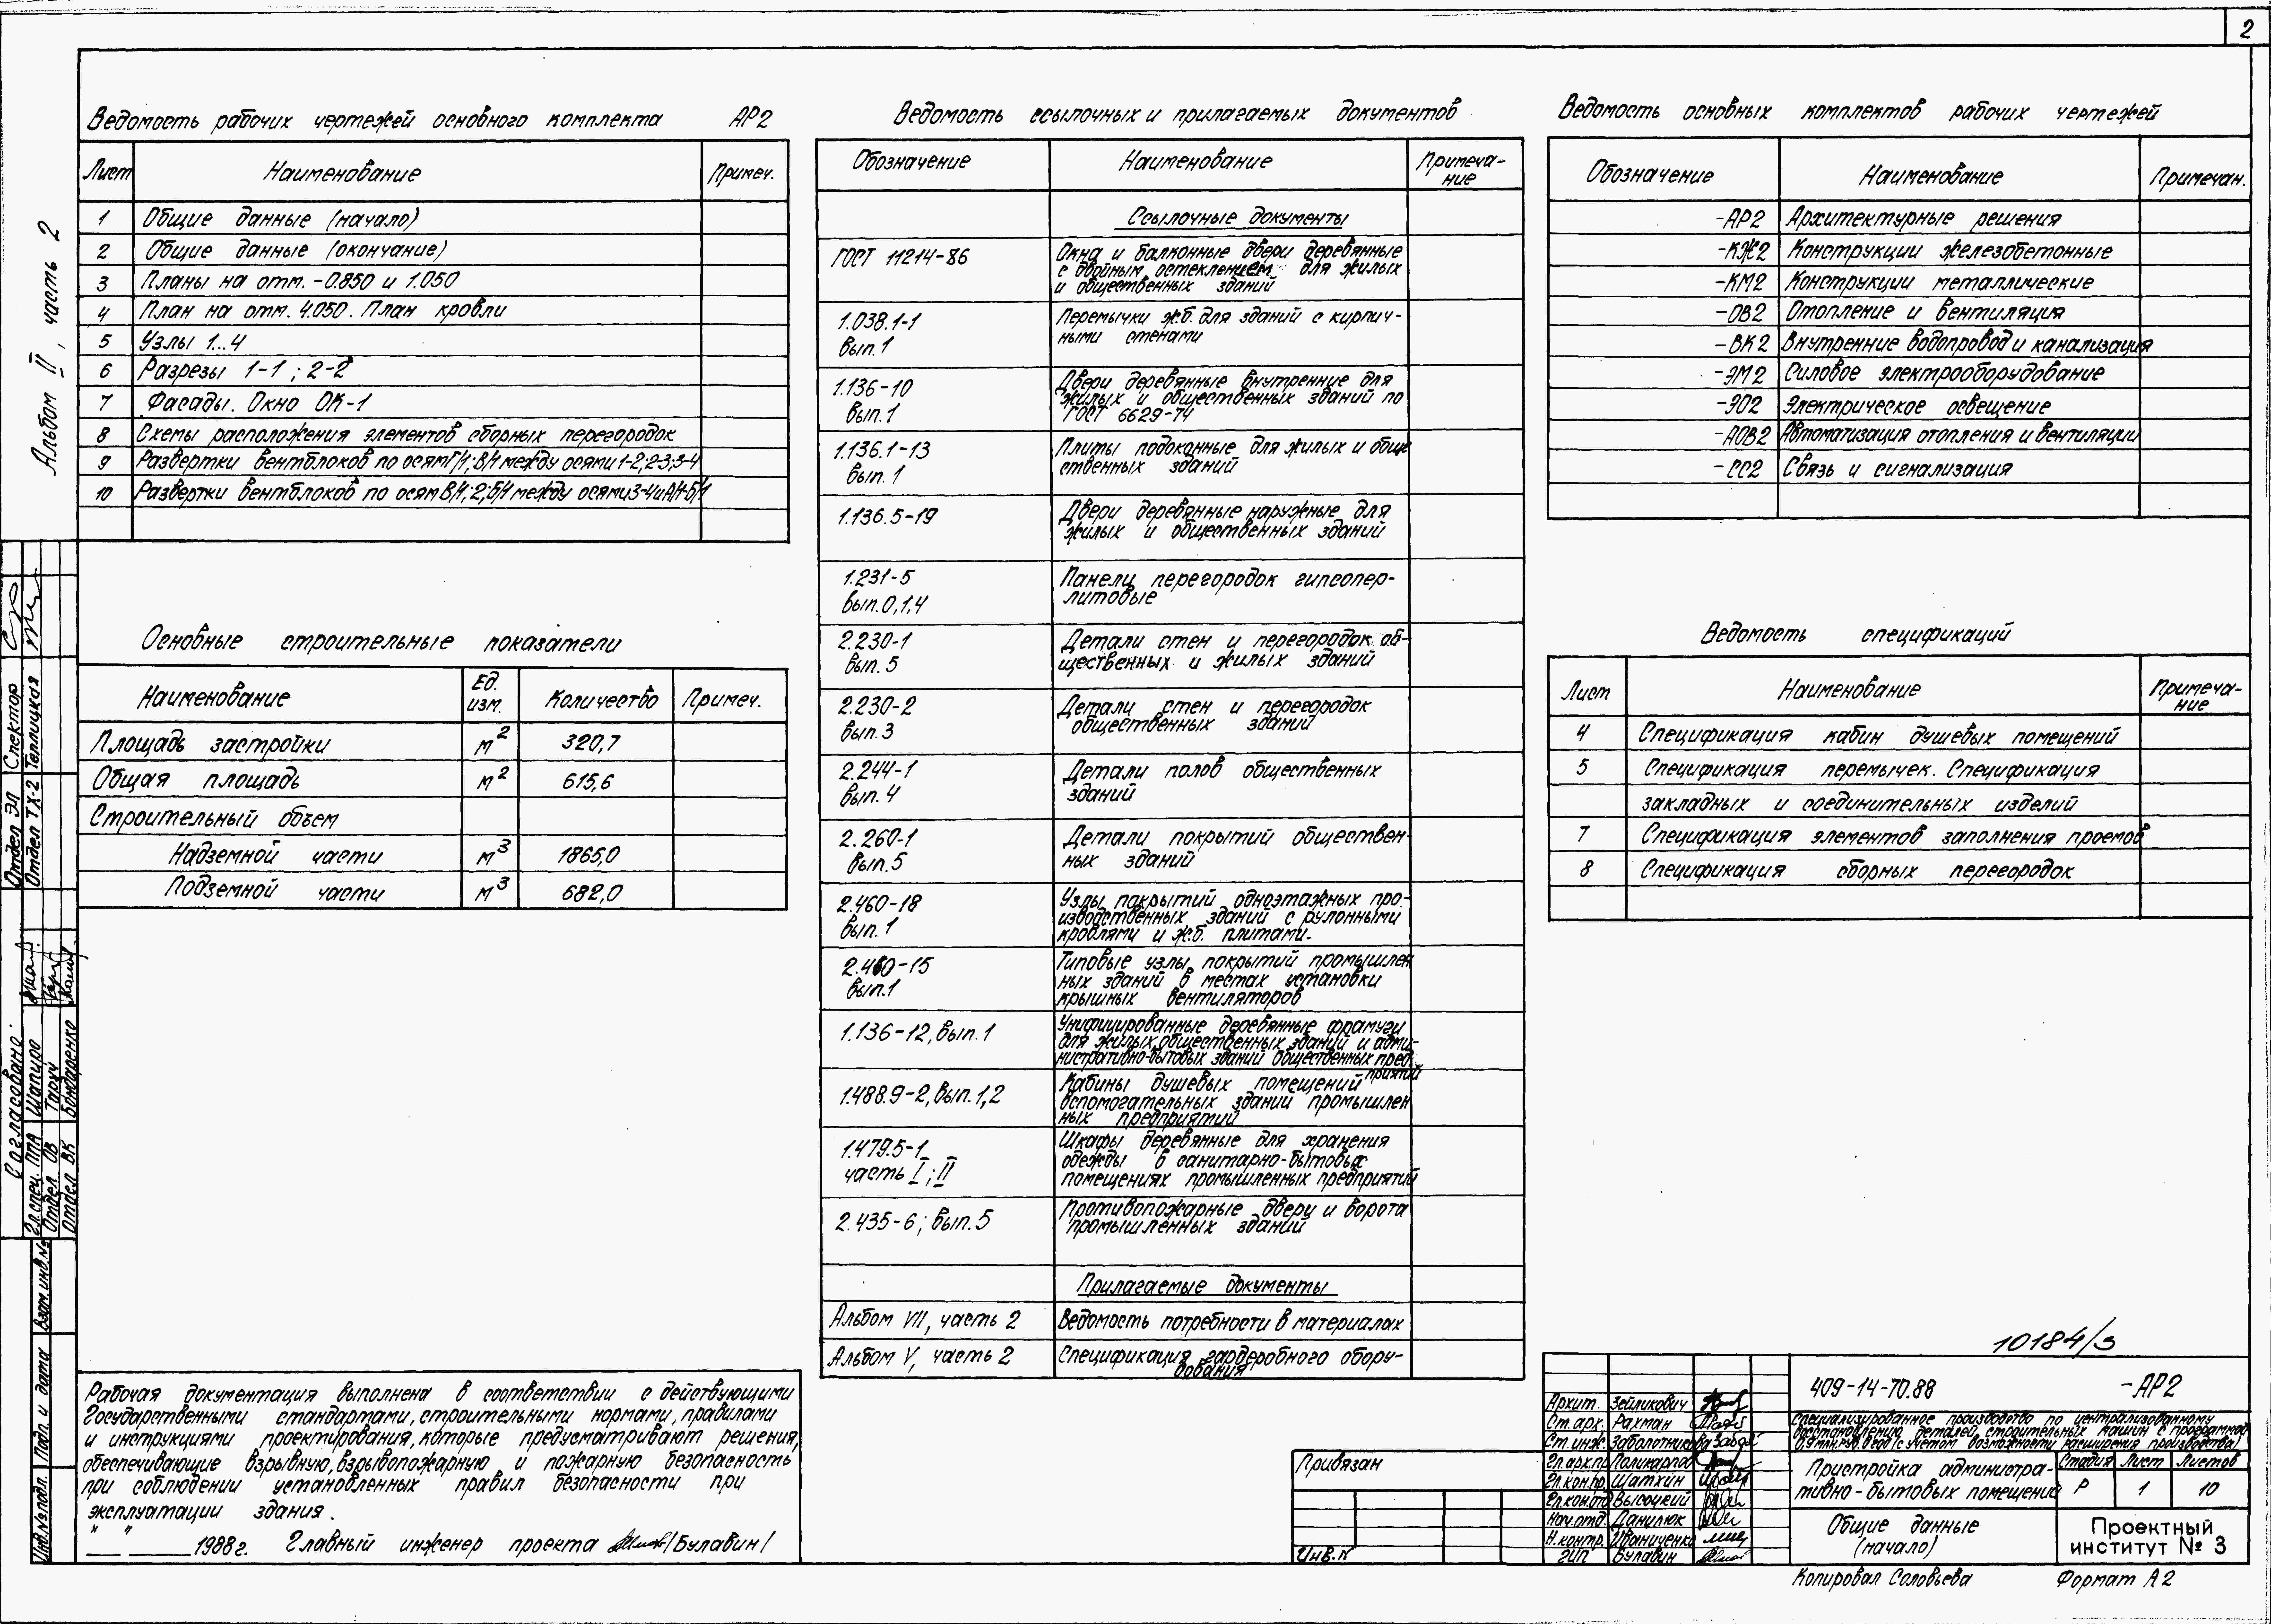 2
Альбом II, часть 2
Ведомость рабочих чертежей основного комплекта АР2
Лист Наименование Примеч.
1 Общие данные (начало)
2 Общие данные (окончание)
3 Планы на отм. -0.850 и 1.050
4 План на отм. 4.050. План кровли
5 Узлы 1...4
6 Разрезы 1-1; 2-2
7 Фасады. Окно ОК-1
8 Схемы расположения элементов сборных перегородок
9 Развертки вентблоков по осям Г/1; В/1 между осями 1-2; 2-3; 3-4
10 Развертки вентблоков по осям В/1; 2; Б/1 между осями 3-4 и А/1-Б/1
Основные строительные показатели
Наименование Ед. изм. Количество Примеч.
Площадь застройки м2 320,7
Общая площадь м2 615,6
Строительный объем
Надземной части м3 1865,0
Подземной части м3 682,0
Рабочая документация выполнена в соответствии с действующими
Государственными стандартами, строительными нормами, правилами
и инструкциями проектирования, которые предусматривают решения,
обеспечивающие взрывную, взрывопожарную и пожарную безопасность
при соблюдении установленных правил безопасности при
эксплуатации здания.
" " 1988г. Главный инженер проекта /Булавин/
Ведомость ссылочных и прилагаемых документов
Обозначение Наименование Примеча-
ние
Ссылочные документы
ГОСТ 11214-86 Окна и балконные двери деревянные
с двойным остеклением для жилых
и общественных зданий
1.038.1-1 Перемычки ж.б. для зданий с кирпич-
вып.1 ными стенами
1.136-10 Двери деревянные внутренние для
вып.1 жилых и общественных зданий по
ГОСТ 6629-74
1.136.1-13 Плиты подоконные для жилых и обще
вып. 1 ственных зданий
1.136.5-19 Двери деревянные наружные для
жилых и общественных зданий
1.231-5 Панели перегородок гипсопер-
вып.0,1,4 литовые
2.230-1 Детали стен и перегородок об-
вып. 5 щественных и жилых зданий
2.230-2 Детали стен и перегородок
вып.3 общественных зданий
2.244-1 Детали полов общественных
вып. 4 зданий
2.260-1 Детали покрытий обществен-
вып.5 ных зданий
2.460-18 Узлы покрытий одноэтажных про-
вып. 1 изводственных зданий с рулонными
кровлями и ж.б. плитами.
2.460-15 Типовые узлы покрытий промышлен
вып.1 ных зданий в местах установки
крышных вентиляторов
1.136-12, вып. 1 Унифицированные деревянные фрамуги
для жилых, общественных зданий и адми-
нистративно-бытовых зданий общественных пред-
приятий
1.488.9-2, вып. 1,2 Кабины душевых помещений
вспомогательных зданий промышлен
ных предприятий
1.479.5-1 Шкафы деревянные для хранения
часть I; II одежды в санитарно-бытовых
помещениях промышленных предприятий
2.435-6; вып. 5 Противопожарные двери и ворота
промышленных зданий
Прилагаемые документы
Альбом VII, часть 2 Ведомость потребности в материалах
Альбом V, часть 2 Спецификация гардеробного обору-
дования
Ведомость основных комплектов рабочих чертежей
Обозначение Наименование Примечан.
-АР2 Архитектурные решения
-КЖ2 Конструкции железобетонные
-КМ2 Конструкции металлические
-ОВ2 Отопление и вентиляция
-ВК2 Внутренние водопровод и канализация
-ЭМ2 Силовое электрооборудование
-ЭО2 Электрическое освещение
-АОВ2 Автоматизация отопления и вентиляции
-СС2 Связь и сигнализация
Ведомость спецификаций
Лист Наименование Примеча-
ние
4 Спецификация кабин душевых помещений
5 Спецификация перемычек. Спецификация
закладных и соединительных изделий
7 Спецификация элементов заполнения проемов
8 Спецификация сборных перегородок
10184/3
409-14-70.88 -АР2
Специализированное производство по централизованному
восстановлению деталей строительных машин с программой
0,9 млн. руб. в год (с учетом возможности расширения производства)
Пристройка администра-
тивно-бытовых помещений
Стадия Лист Листов
Р 1 10
Общие данные
(начало)
Проектный
институт № 3
Архит. Зейликович
Ст. арх. Рахман
Ст. инж. Заболотникова
Гл.арх.пр Поликарпов
Гл.кон.пр. Шатхин
Гл.кон.отд Высоцкий
Нач.отд. Данилюк
Н.контр. Иваниченко
ГИП Булавин
Привязан
Инв.N
Копировал Соловьева Формат А2
Отдел ЭЛ Спектор
Отдел ТХ-2 Теплицкая
Согласовано:
Гл.спец. ППА Шапиро
Отдел ОВ Тарук
Отдел ВК Бондаренко
Взам.инв.№
Подп. и дата
Инв.№ подл.